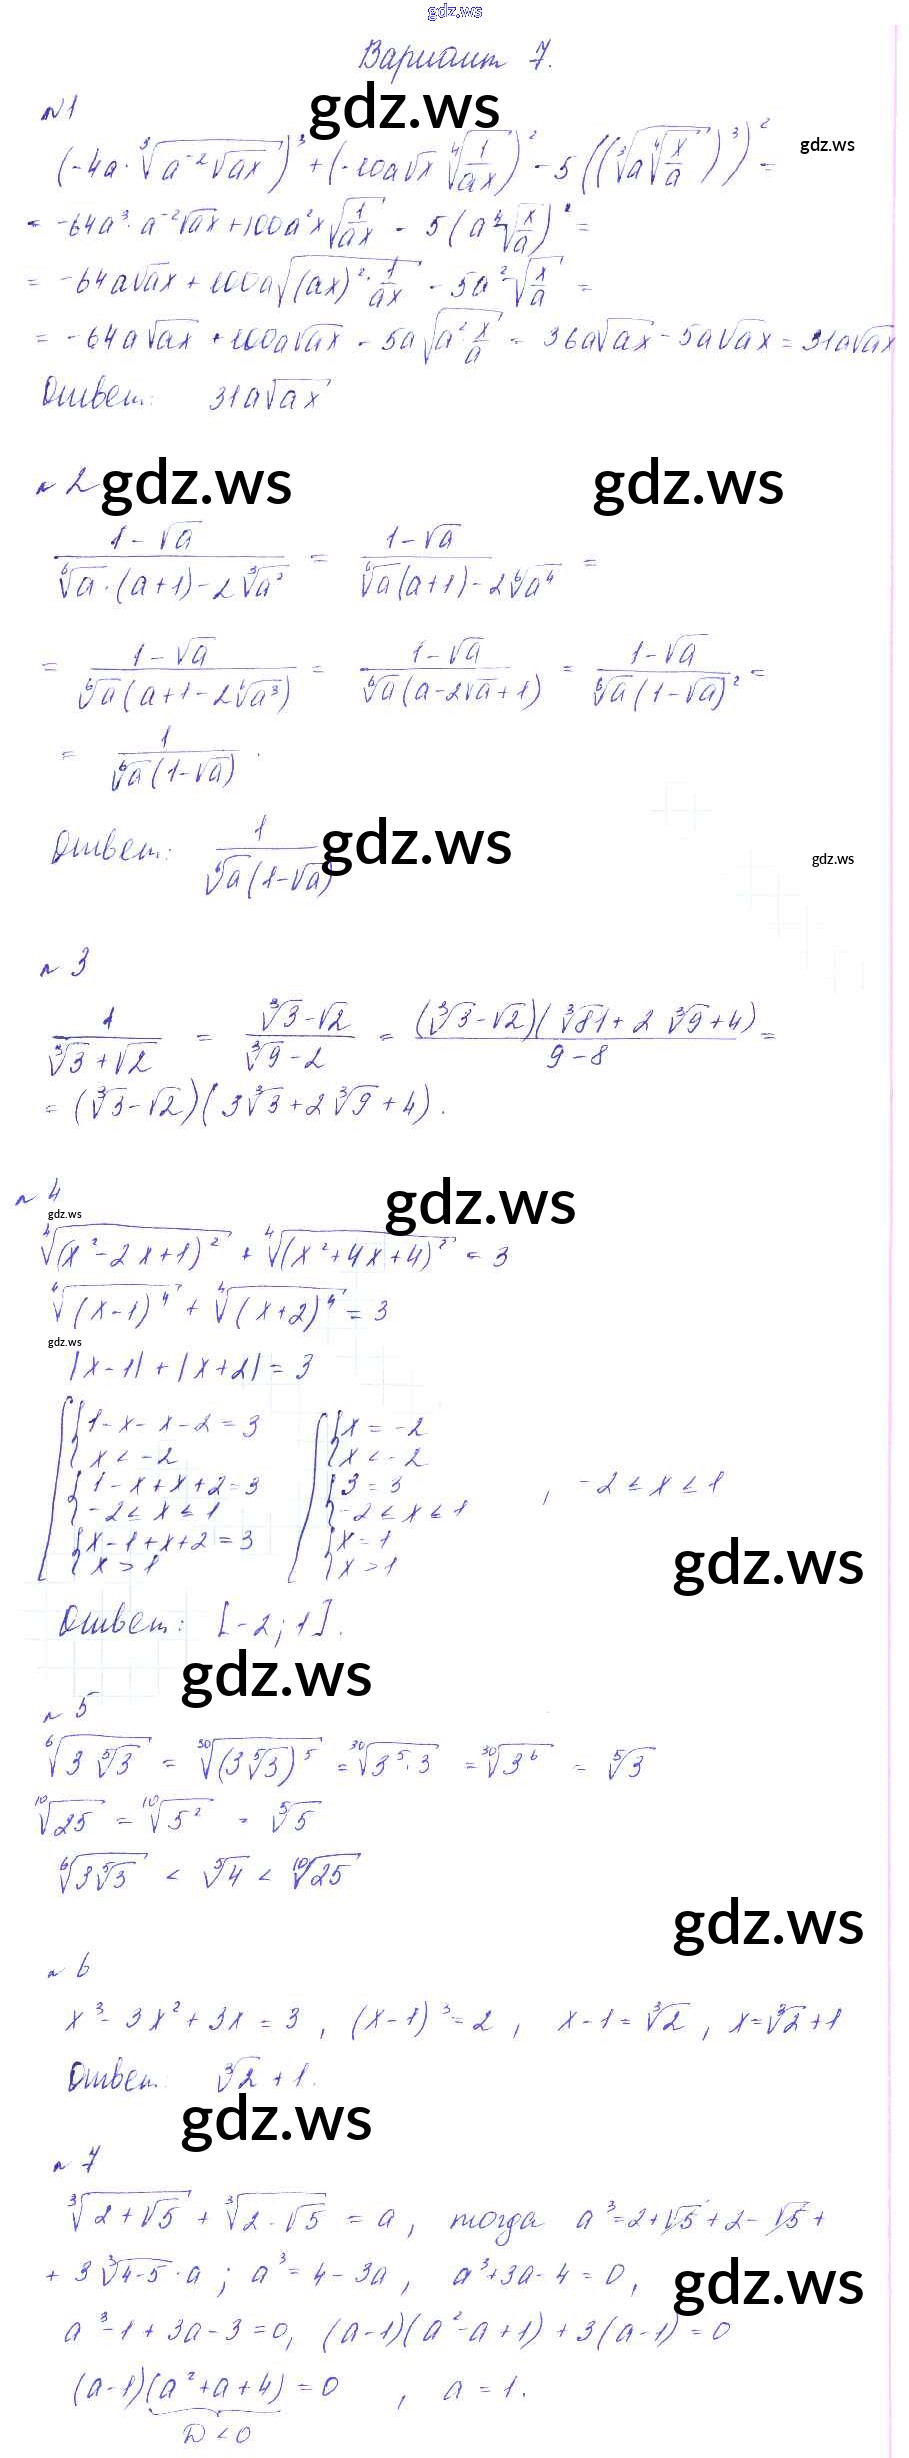 gdz.ws
Вариант 7.
№1
gdz.ws
(-4a·∛(a⁻²√(ax)))³ + (-10a√x ∜(1/(ax)))² - 5((∛(a∜(x/a)))³)² =
gdz.ws
= -64a³·a⁻²√(ax) + 100a²x√(1/(ax)) - 5(a∜(x/a))² =
= -64a√(ax) + 100a√((ax)²·1/(ax)) - 5a²√(x/a) =
= -64a√(ax) + 100a√(ax) - 5a√(a² x/a) = 36a√(ax) - 5a√(ax) = 31a√(ax)
Ответ: 31a√(ax)
№2
gdz.ws gdz.ws
(1-√a)/(⁶√a·(a+1)-2∛(a²)) = (1-√a)/(⁶√a(a+1)-2⁶√(a⁴)) =
= (1-√a)/(⁶√a(a+1-2⁶√(a³))) = (1-√a)/(⁶√a(a-2√a+1)) = (1-√a)/(⁶√a(1-√a)²) =
= 1/(⁶√a(1-√a)).
Ответ: 1/(⁶√a(1-√a))
gdz.ws
gdz.ws
№3
1/(∛3+√2) = (∛3-√2)/(∛9-2) = (∛3-√2)(∛81+2∛9+4)/(9-8) =
= (∛3-√2)(3∛3+2∛9+4).
№4
gdz.ws
gdz.ws
∜((x²-2x+1)²) + ∜((x²+4x+4)²) = 3
∜((x-1)⁴) + ∜((x+2)⁴) = 3
gdz.ws
|x-1| + |x+2| = 3
1-x-x-2=3 x=-2
x<-2 x<-2
1-x+x+2=3 3=3 , -2≤x≤1
-2≤x≤1 -2≤x≤1
x-1+x+2=3 x=1
x>1 x>1
gdz.ws
Ответ: [-2;1].
gdz.ws
№5
⁶√(3⁵√3) = ³⁰√((3⁵√3)⁵) = ³⁰√(3⁵·3) = ³⁰√(3⁶) = ⁵√3
¹⁰√25 = ¹⁰√(5²) = ⁵√5
⁶√(3⁵√3) < ⁵√4 < ¹⁰√25
gdz.ws
№6
x³-3x²+3x=3, (x-1)³=2, x-1=∛2, x=∛2+1
Ответ: ∛2+1.
gdz.ws
№7
∛(2+√5) + ∛(2-√5) = a, тогда a³=2+√5+2-√5+
+3∛(4-5)·a; a³=4-3a, a³+3a-4=0,
gdz.ws
a³-1+3a-3=0, (a-1)(a²-a+1)+3(a-1)=0
(a-1)(a²+a+4)=0, a=1.
D<0